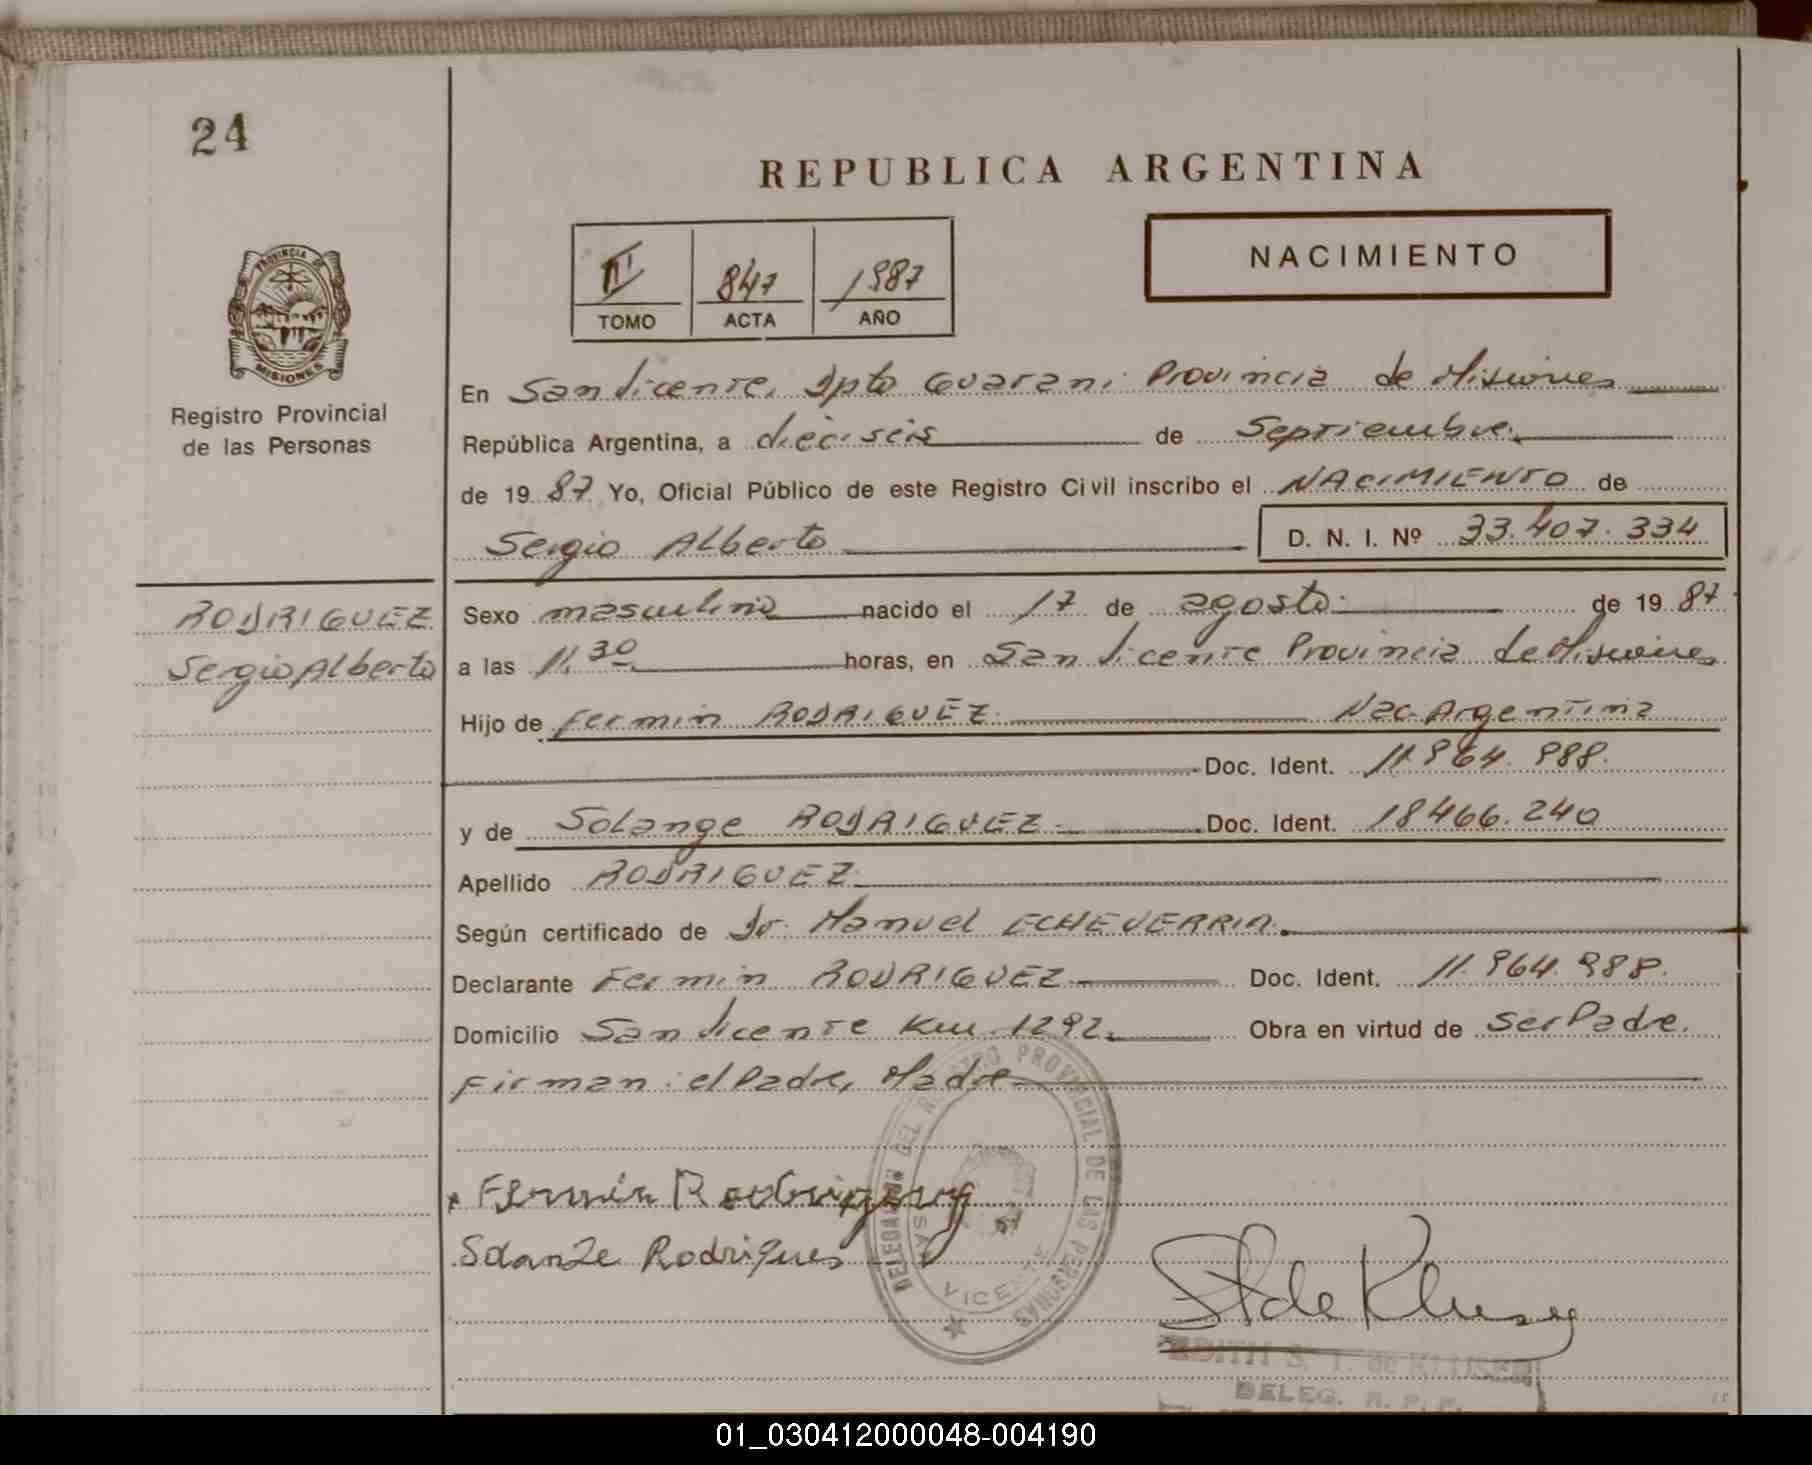 24
REPUBLICA ARGENTINA
NACIMIENTO
III 847 1987
TOMO ACTA AÑO
PROVINCIA DE MISIONES
Registro Provincial
de las Personas
En San Vicente, Dpto Guarani Provincia de Misiones
República Argentina, a dieciseis de Septiembre
de 19 87 Yo, Oficial Público de este Registro Civil inscribo el NACIMIENTO de
Sergio Alberto D. N. I. Nº 33.407.334
RODRIGUEZ
Sergio Alberto
Sexo masculino nacido el 17 de agosto de 19 87
a las 11.30 horas, en San Vicente Provincia de Misiones
Hijo de Fermin RODRIGUEZ Nac. Argentina
Doc. Ident. 11.964.988.
y de Solange RODRIGUEZ Doc. Ident. 18466.240
Apellido RODRIGUEZ
Según certificado de Dr. Manuel ECHEVERRIA.
Declarante Fermin RODRIGUEZ Doc. Ident. 11.964.988.
Domicilio San Vicente Km. 1292. Obra en virtud de ser Padre.
Firman: el Padre, Madre
DELEGACION DEL REGISTRO PROVINCIAL DE LAS PERSONAS
SAN VICENTE
Fermin Rodriguez
Solanze Rodrigues
EDITH S. T. de KLUSEN
DELEG. R. P. P.
01_030412000048-004190